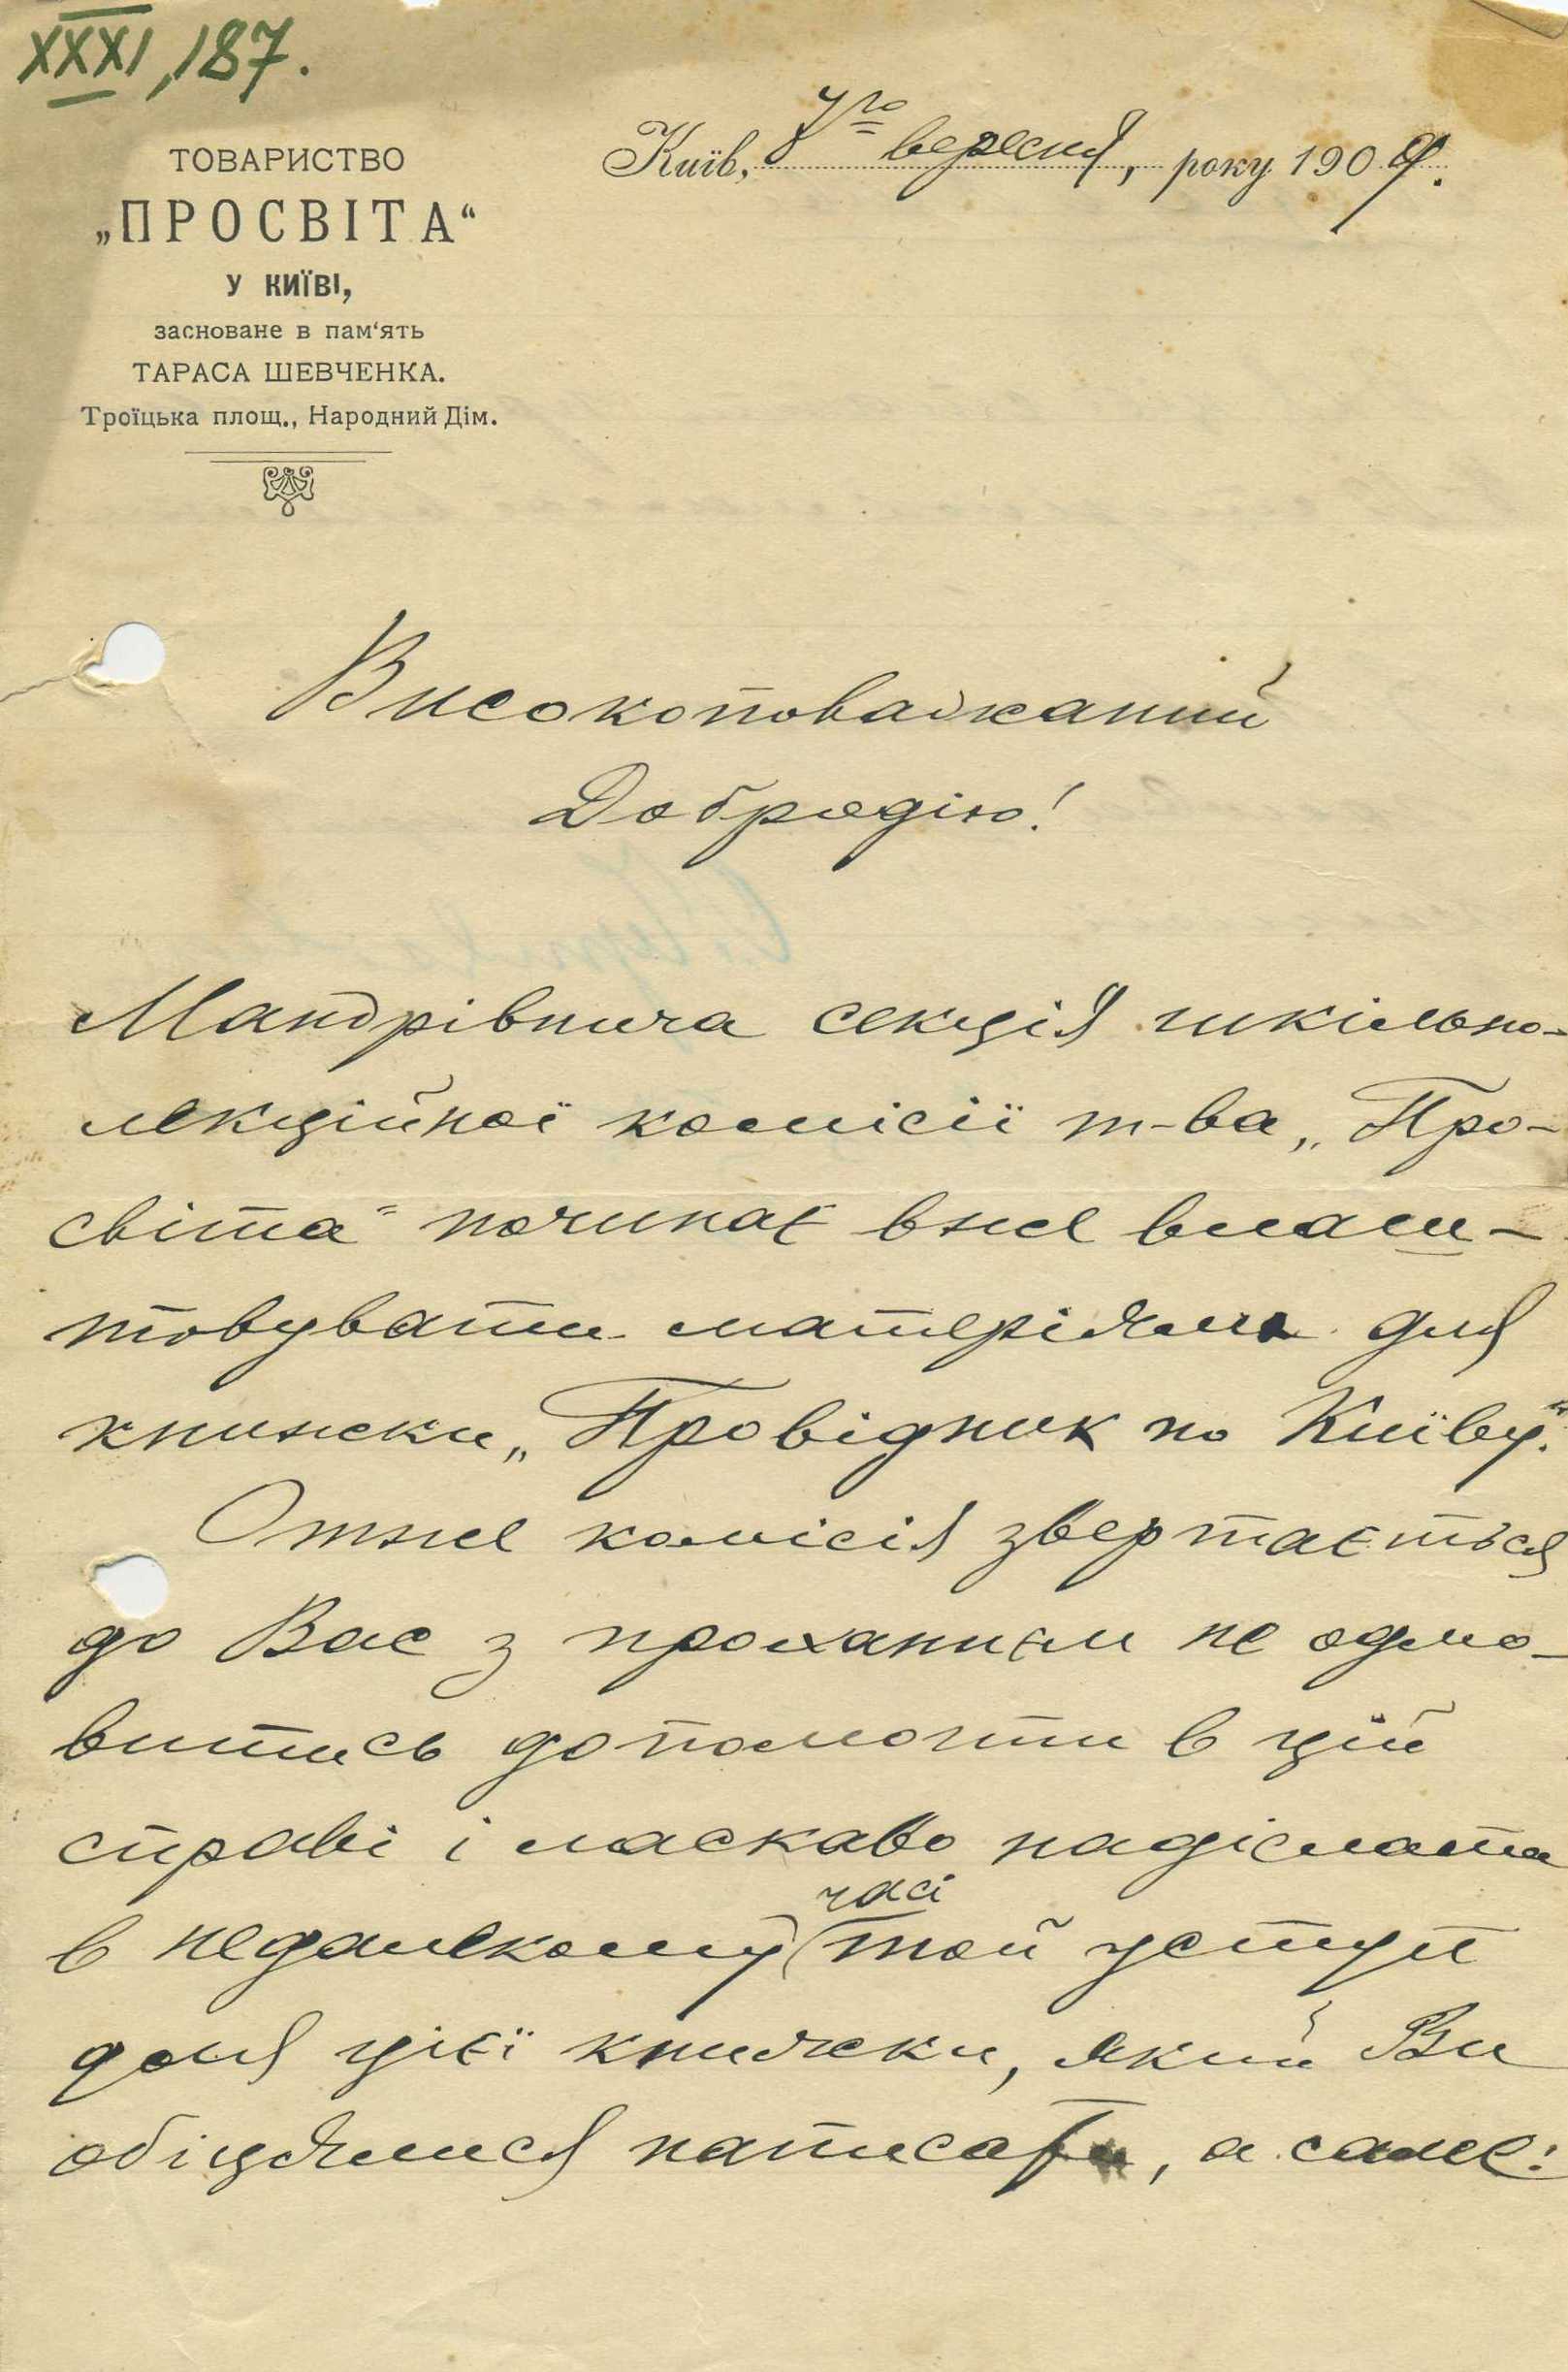 XXXI, 187.
ТОВАРИСТВО
„ПРОСВІТА“
У КИЇВІ,
засноване в пам‘ять
ТАРАСА ШЕВЧЕНКА.
Троїцька площ., Народний Дім.
Київ, 7го вересня, року 1909.
Високоповажаний
Добродію!
Мандрівнича секція шкільно-
лекційної комісії т-ва „Про-
світа“ починає вже влаш-
товувати матеріяли для
книжки „Провідник по Київу“.
Отже комісія звертається
до Вас з проханнєм не одмо-
витись допомогти в цій
справі і ласкаво надіслати
часі
в недалекому той уступ
для цієї книжки, який Ви
обіцялися написати, а саме: